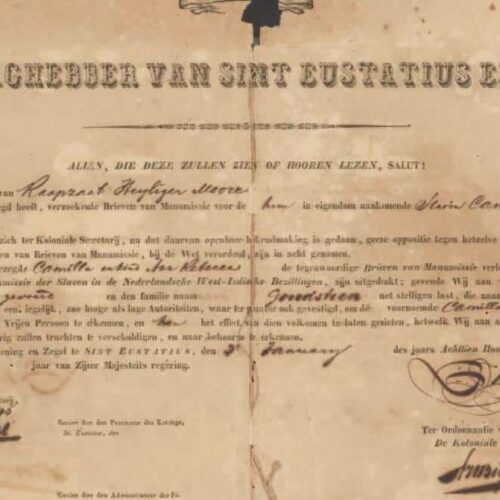 GHEBBER VAN SINT EUSTATIUS E
ALLEN, DIE DEZE ZULLEN ZIEN OF HOOREN LEZEN, SALUT!
van Raapzaat Heyliger Moore
gd heeft, verzoekende Brieven van Manumissie voor de hem in eigendom aankomende Slavin Cam
zich ter Koloniale Secretarij, na dat daarvan openbare bekendmaking is gedaan, geene oppositie tegen hetzelve
en van Brieven van Manumissie, bij de Wet verordend, zijn in acht genomen.
zegde Camilla de tegenwoordige Brieven van Manumissie verle
missie der Slaven in de Nederlandsche West-Indische Bezittingen, zijn uitgedrukt; gevende Wij aan
en den familie naam met stelligen last, die naam
een iegelijk, zoo hooge als lage Autoriteiten, waar ter plaatse ook gevestigd, om dé voornoemde Camilla
Vrijen Persoon te erkennen, en het effect van dien volkomen te laten genieten, hetwelk Wij aan
rig zullen trachten te verschuldigen, en naar behooren te erkennen.
ening en Zegel te SINT EUSTATIUS, den 3 January des jaars Achttien Hon
jaar van Zijner Majesteits regering.
tarij,
Gezien door den Procureur des Konings,
St. Eustatius, den
Ter Ordonnantie v
De Koloniale
Gezien door den Administrateur der Fi-